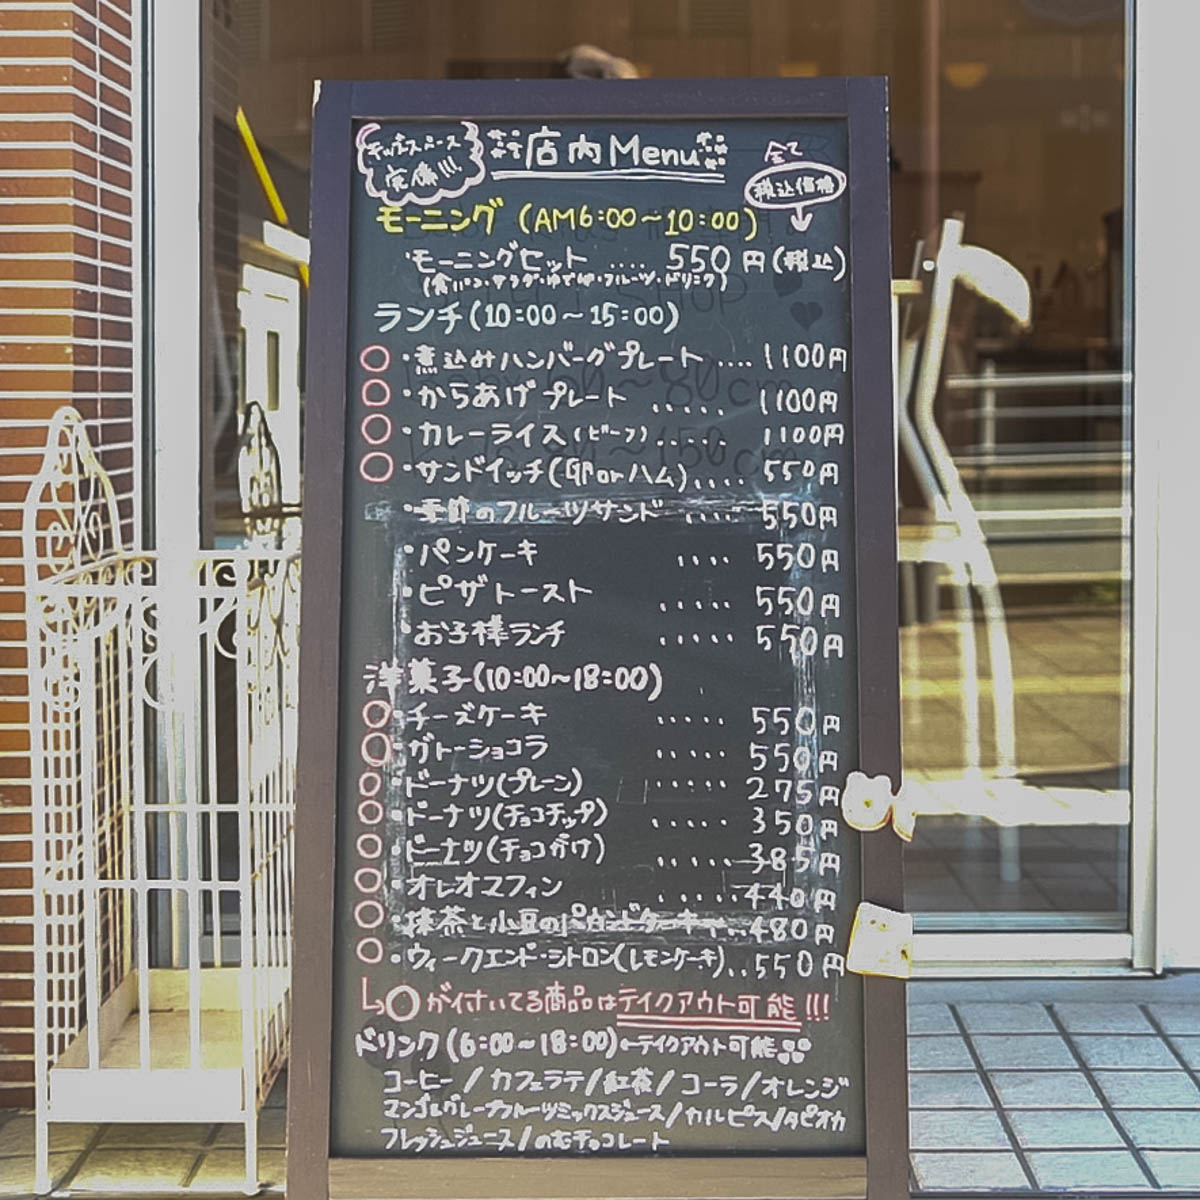 キッズスペース
完備!!!
店内Menu
全て
税込価格
モーニング (AM6:00～10:00)
・モーニングセット .... 550円(税込)
(食パン・サラダ・ゆで卵・フルーツ・ドリンク)
ランチ(10:00～15:00)
○・煮込みハンバーグプレート .... 1100円
○・からあげプレート ..... 1100円
○・カレーライス(ビーフ)..... 1100円
○・サンドイッチ(ツナorハム).... 550円
・季節のフルーツサンド .... 550円
・パンケーキ .... 550円
・ピザトースト ..... 550円
・お子様ランチ ..... 550円
洋菓子(10:00～18:00)
○・チーズケーキ ..... 550円
○・ガトーショコラ ..... 550円
○・ドーナツ(プレーン) ..... 275円
○・ドーナツ(チョコチップ) ..... 350円
○・ドーナツ(チョコがけ) ..... 385円
○・オレオマフィン ..... 440円
○・抹茶と小豆のパウンドケーキ... 480円
○・ウィークエンド・シトロン(レモンケーキ).. 550円
↳○が付いてる商品はテイクアウト可能!!!
ドリンク(6:00～18:00)←テイクアウト可能
コーヒー/カフェラテ/紅茶/コーラ/オレンジ
マンゴー&グレープフルーツミックスジュース/カルピス/タピオカ
フレッシュジュース/のむチョコレート